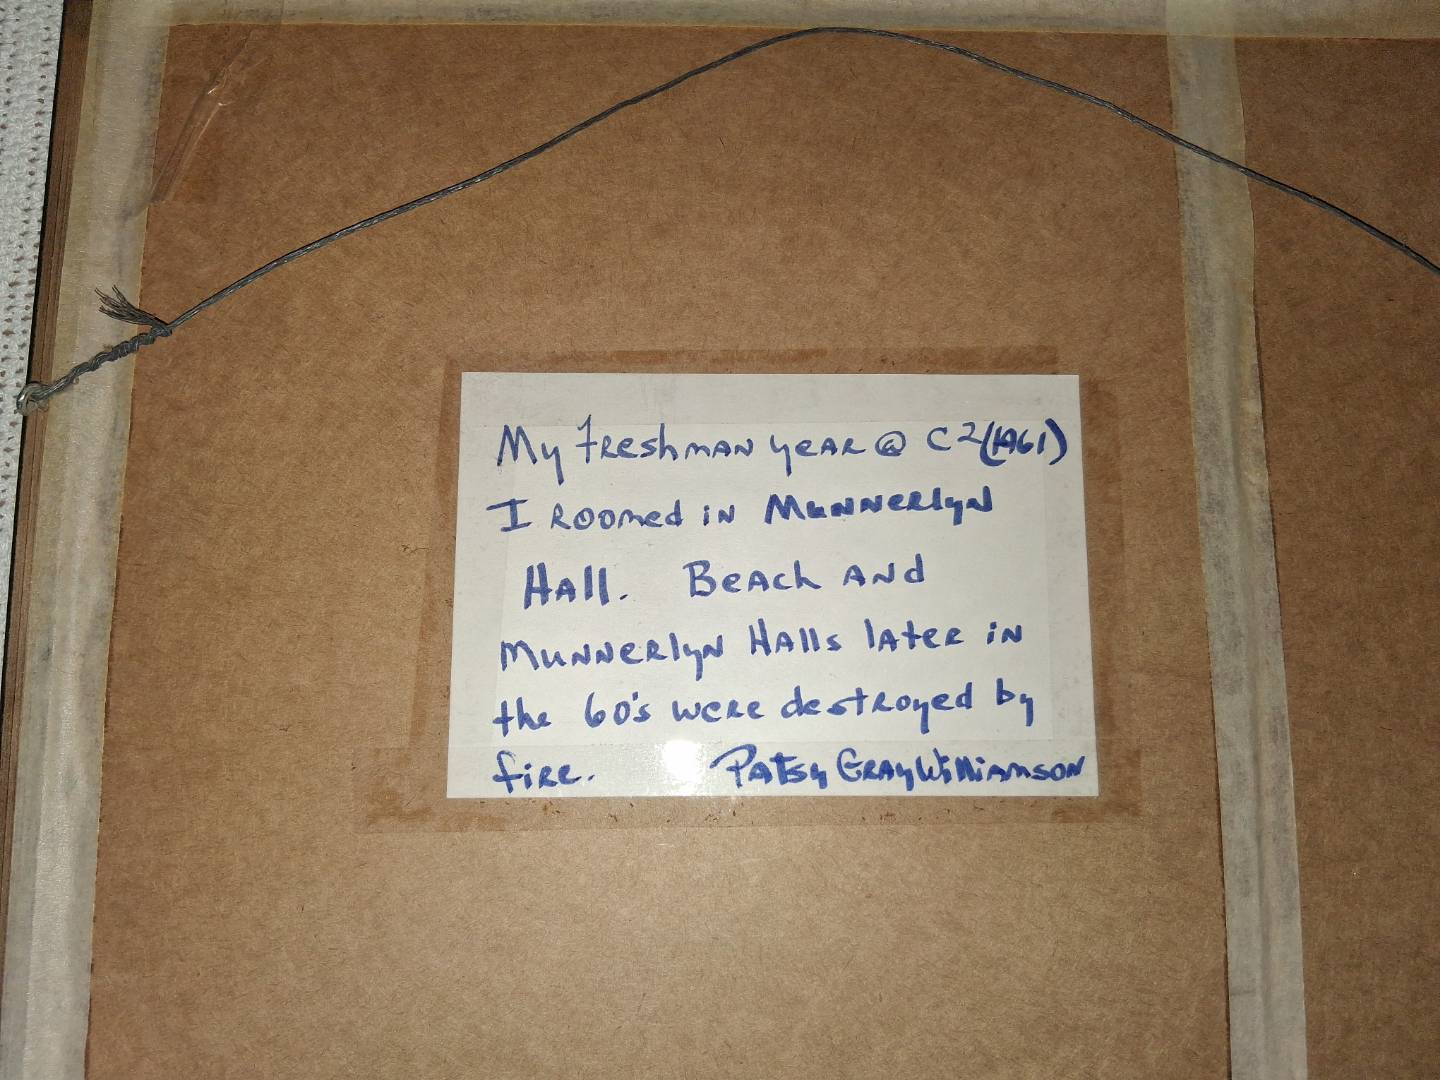 My freshman year @ C2 (1961)
I roomed in Munnerlyn
Hall. Beach and
Munnerlyn Halls later in
the 60's were destroyed by
fire. Patsy Gray Williamson